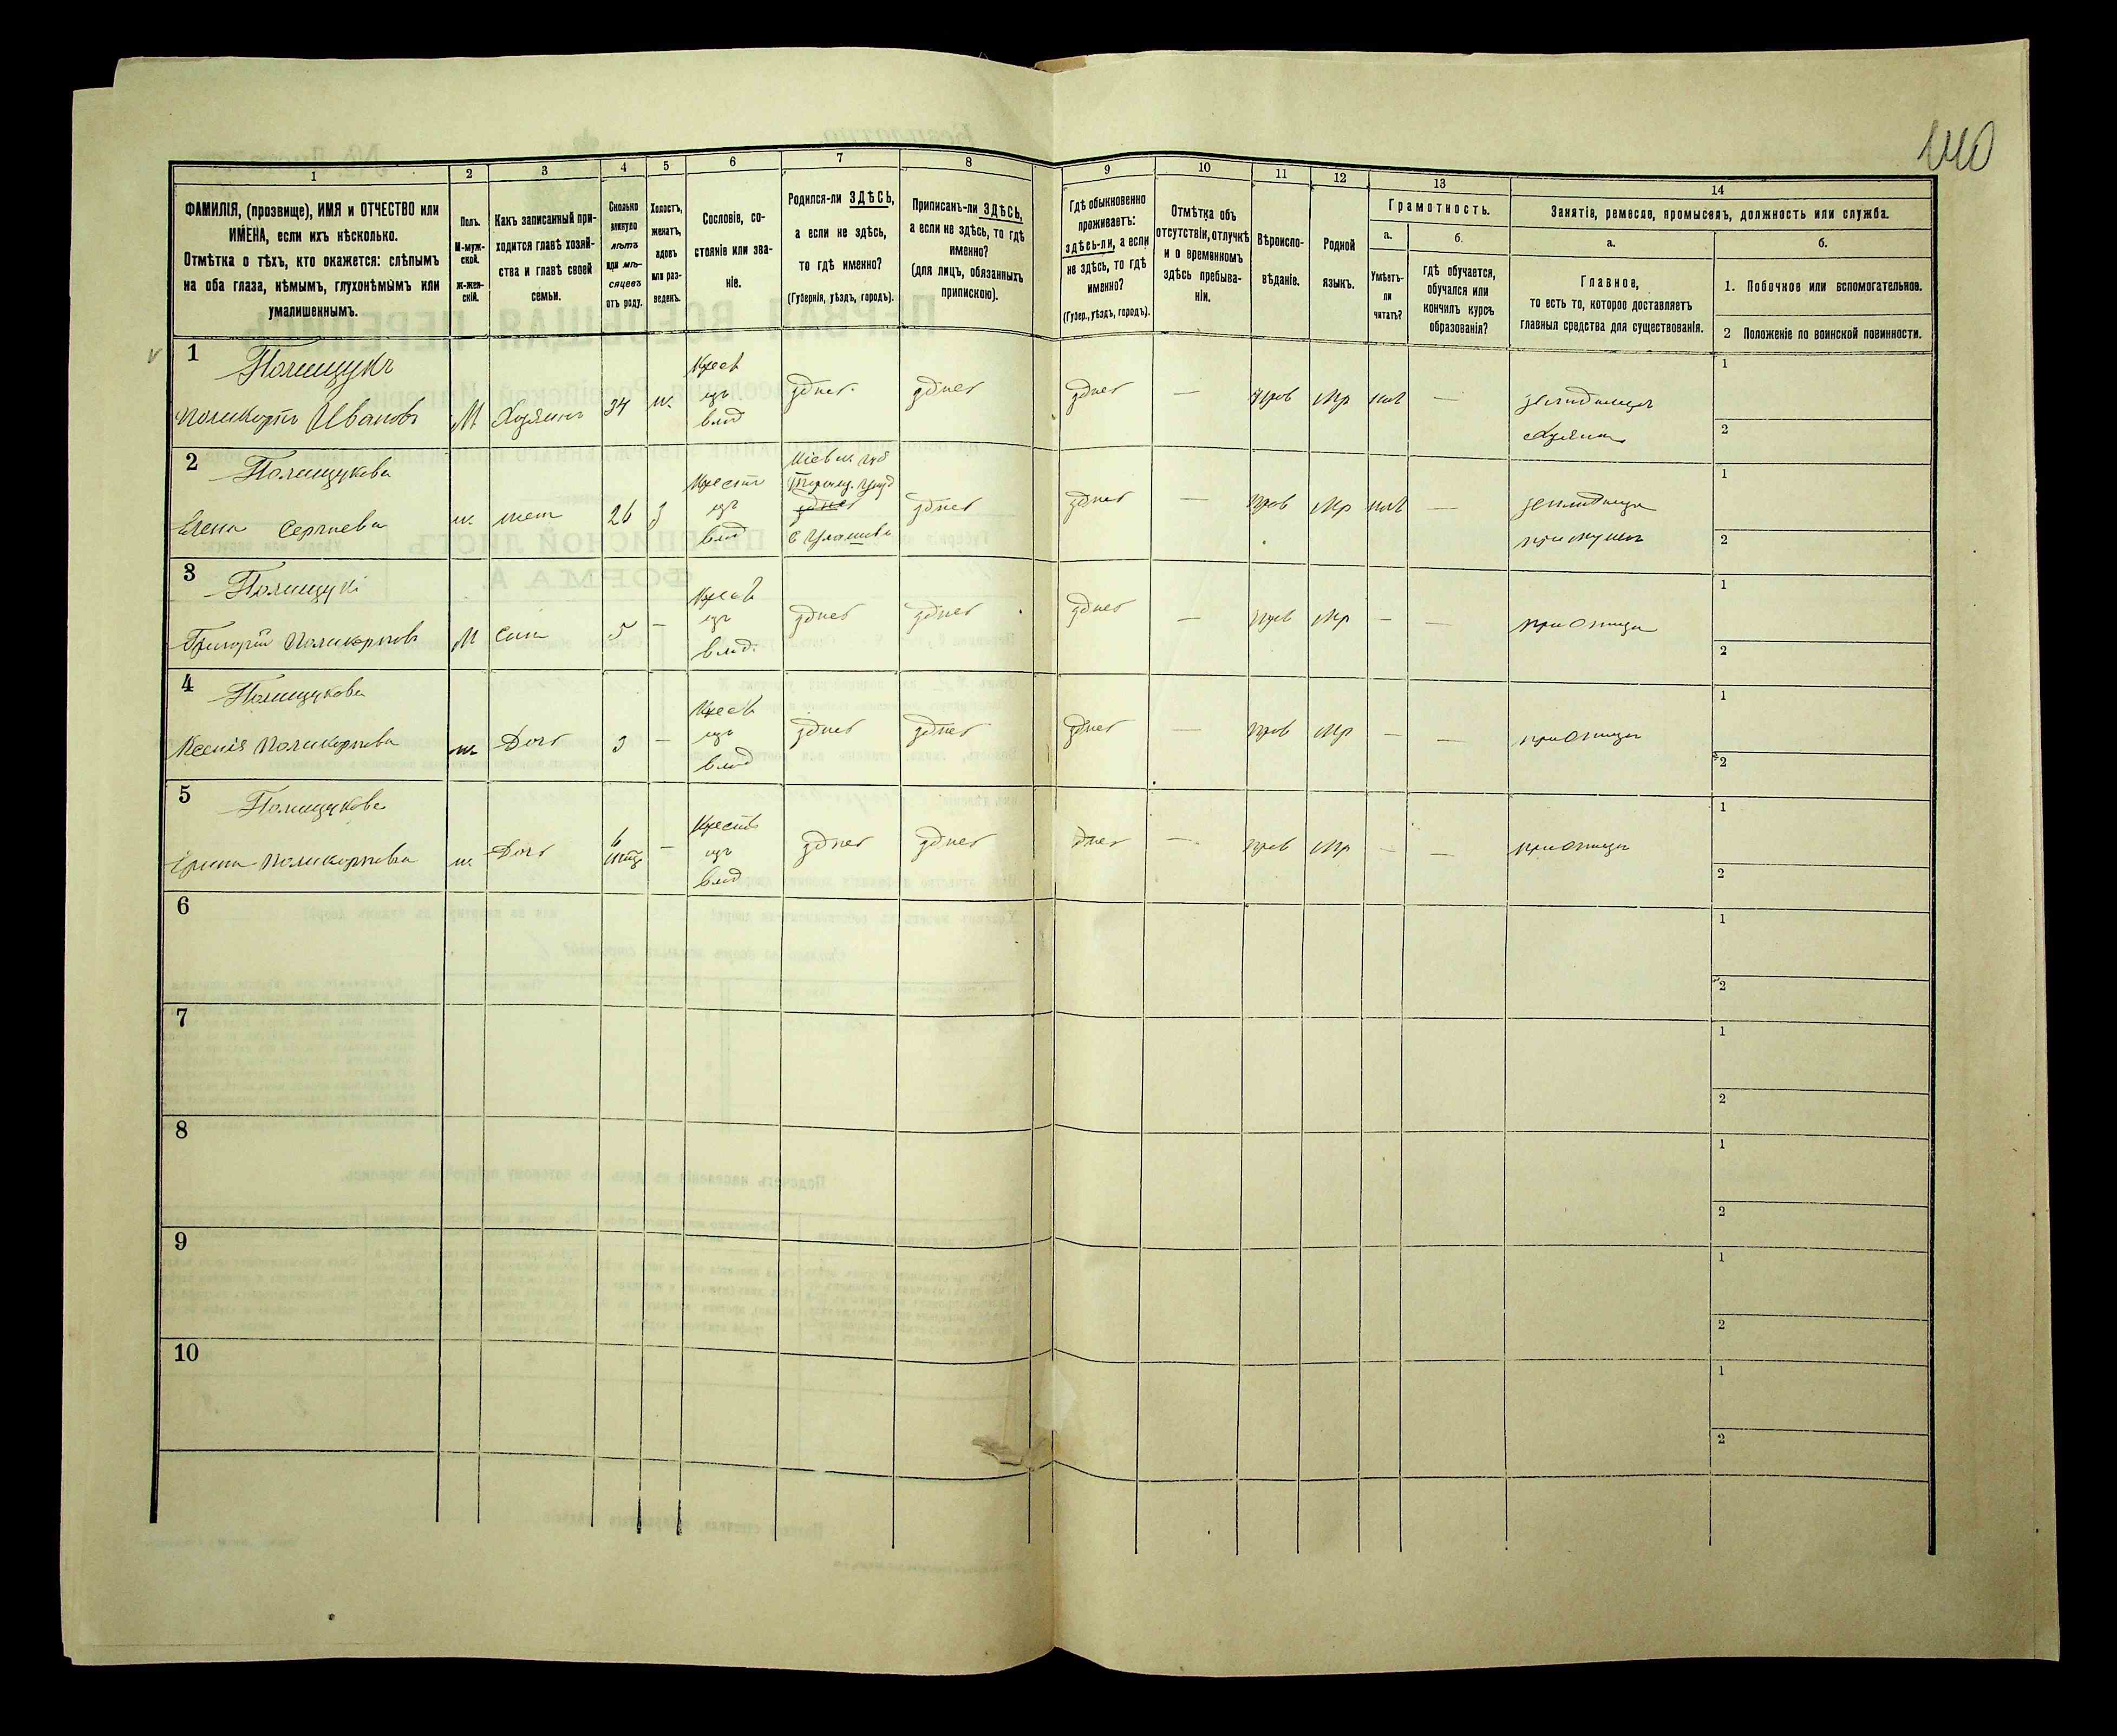 140
1
2
3
4
5
6
7
8
9
10
11
12
13
14
ФАМИЛІЯ, (прозвище), ИМЯ и ОТЧЕСТВО или
ИМЕНА, если ихъ нѣсколько.
Отмѣтка о тѣхъ, кто окажется: слѣпымъ
на оба глаза, нѣмымъ, глухонѣмымъ или
умалишеннымъ.
Полъ.
М-муж-
ской.
ж-жен-
скій.
Какъ записанный при-
ходится главѣ хозяй-
ства и главѣ своей
семьи.
Сколько
минуло
лѣтъ
или мѣ-
сяцевъ
отъ роду.
Холостъ,
женатъ,
вдовъ
или раз-
веденъ.
Сословіе, со-
стояніе или зва-
ніе.
Родился-ли ЗДѢСЬ,
а если не здѣсь,
то гдѣ именно?
(Губернія, уѣздъ, городъ).
Приписанъ-ли ЗДѢСЬ,
а если не здѣсь, то гдѣ
именно?
(для лицъ, обязанныхъ
припискою).
Гдѣ обыкновенно
проживаетъ:
здѣсь-ли, а если
не здѣсь, то гдѣ
именно?
(Губер., уѣздъ, городъ).
Отмѣтка объ
отсутствіи, отлучкѣ
и о временномъ
здѣсь пребыва-
ніи.
Вѣроиспо-
вѣданіе.
Родной
языкъ.
Грамотность.
а.
Умѣетъ-
ли
читать?
б.
Гдѣ обучается,
обучался или
кончилъ курсъ
образованія?
Занятіе, ремесло, промыселъ, должность или служба.
а.
Главное,
то есть то, которое доставляетъ
главныя средства для существованія.
б.
1. Побочное или вспомогательное.
2 Положеніе по воинской повинности.
1
Полищукъ
Поликарпъ Ивановъ
М
Хозяинъ
34
ж.
Крест
изъ
влад
здѣсь
здѣсь
здѣсь
—
Прав
Мр
нѣт
—
земледѣлецъ
хозяинъ
1
2
2
Полищукова
Елена Сергиева
ж.
жена
26
з
Крестъ
изъ
влад
Кіевск. губ
здѣсь
здѣсь
здѣсь
—
Прав
Мр
нѣт
—
земледѣлецъ
при мужѣ
1
2
3
Полищукъ
Григорій Поликарповъ
М
Сынъ
5
—
Крест
изъ
влад.
здѣсь
здѣсь
здѣсь
—
Прав
Мр
—
—
при отцѣ
1
2
4
Полищукова
Ксенія Поликарпова
ж
Дочь
3
—
Крест
изъ
влад
здѣсь
здѣсь
здѣсь
—
Прав
Мр
—
—
при отцѣ
1
2
5
Полищукова
Поликарпова
ж.
Дочь
6
мѣс
—
Крестъ
изъ
влад
здѣсь
здѣсь
здѣсь
—
Прав
Мр
—
—
при отцѣ
1
2
6
1
2
7
1
2
8
1
2
9
1
2
10
1
2